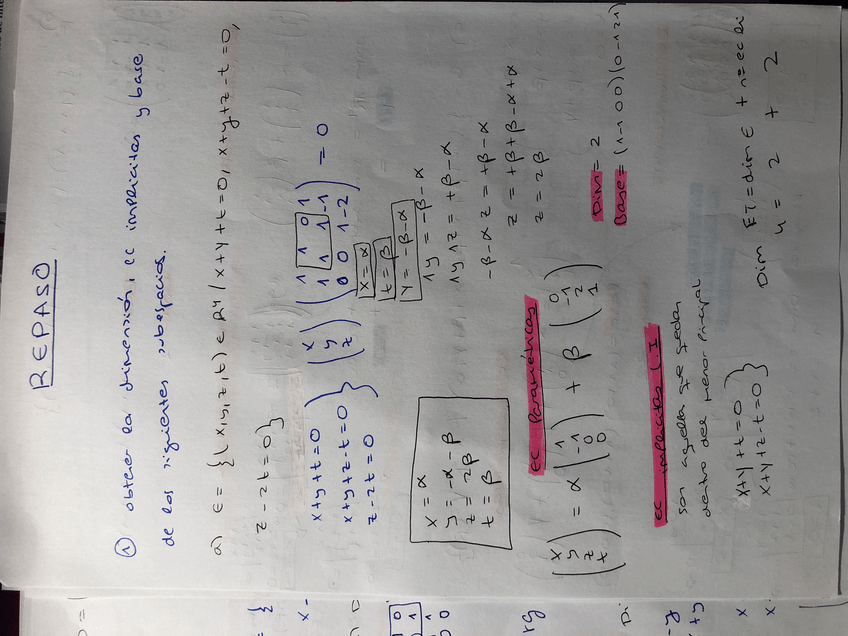 REPASO
① obtener la dimensión, ec implicitas y base
de los siguientes subespacios.
a) E = {(x,y,z,t) ∈ R⁴ / x+y+t=0, x+y+z-t=0,
z-2t=0}
x+y+t=0
x+y+z-t=0
z-2t=0
}
(x
y
z)
(1 1 0 1
1 1 1 -1
0 0 1 -2) = 0
x=α
t=β
y=-β-α
1y=-β-α
1y1z=+β-α
-β-αz=+β-α
z=+β+β-α+α
z=2β
x=α
y=-α-β
z=2β
t=β
ec Paraméticas
(x
y
z
t) = α (1
-1
0
0) + β (0
-1
2
1)
Dim=2
Base=(1-100)(0-121)
ec implicitas (.I
son aquellas que quedan
dentro del menor Principal
x+y+t=0
x+y+z-t=0
}
Dim ET=dim E + nº ec Di
4 = 2 + 2